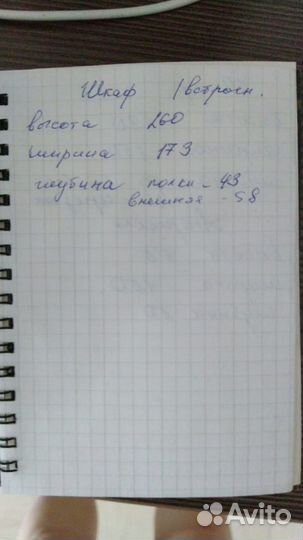 Шкаф /встроен.
высота 260
ширина 173
глубина полки - 43
внешняя - 58
Avito